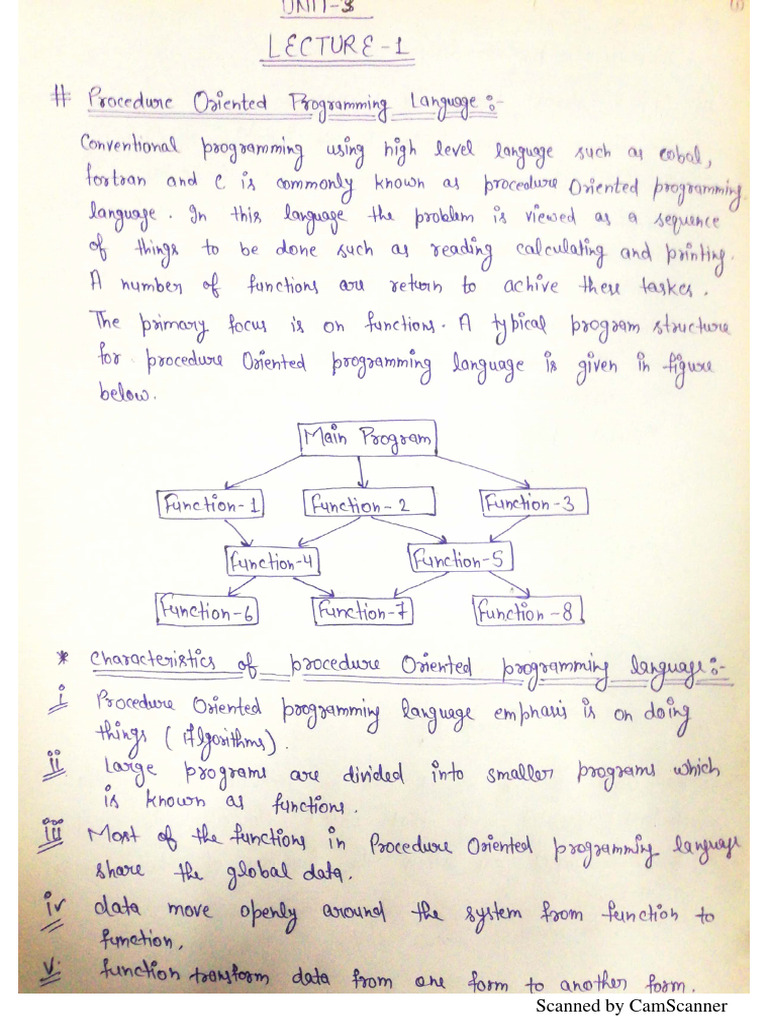 UNIT-3
(1)
LECTURE-1
# Procedure Oriented Programming Language:-
Conventional programming using high level language such as cobal,
fortran and C is commonly known as procedure Oriented programming
language. In this language the problem is viewed as a sequence
of things to be done such as reading calculating and printing.
A number of functions are return to achive these taskes.
The primary focus is on functions. A typical program structure
for procedure Oriented programming language is given in figure
below.
Main Program
Function-1 Function-2 Function-3
Function-4 Function-5
Function-6 Function-7 Function-8
* Characteristics of procedure Oriented programming language:-
i Procedure Oriented programming language emphasis is on doing
things (Algorithms).
ii Large programs are divided into smaller programs which
is known as functions.
iii Most of the functions in Procedure Oriented programming language
share the global data.
iv data move openly around the system from function to
function.
v. function transform data from one form to another form.
Scanned by CamScanner